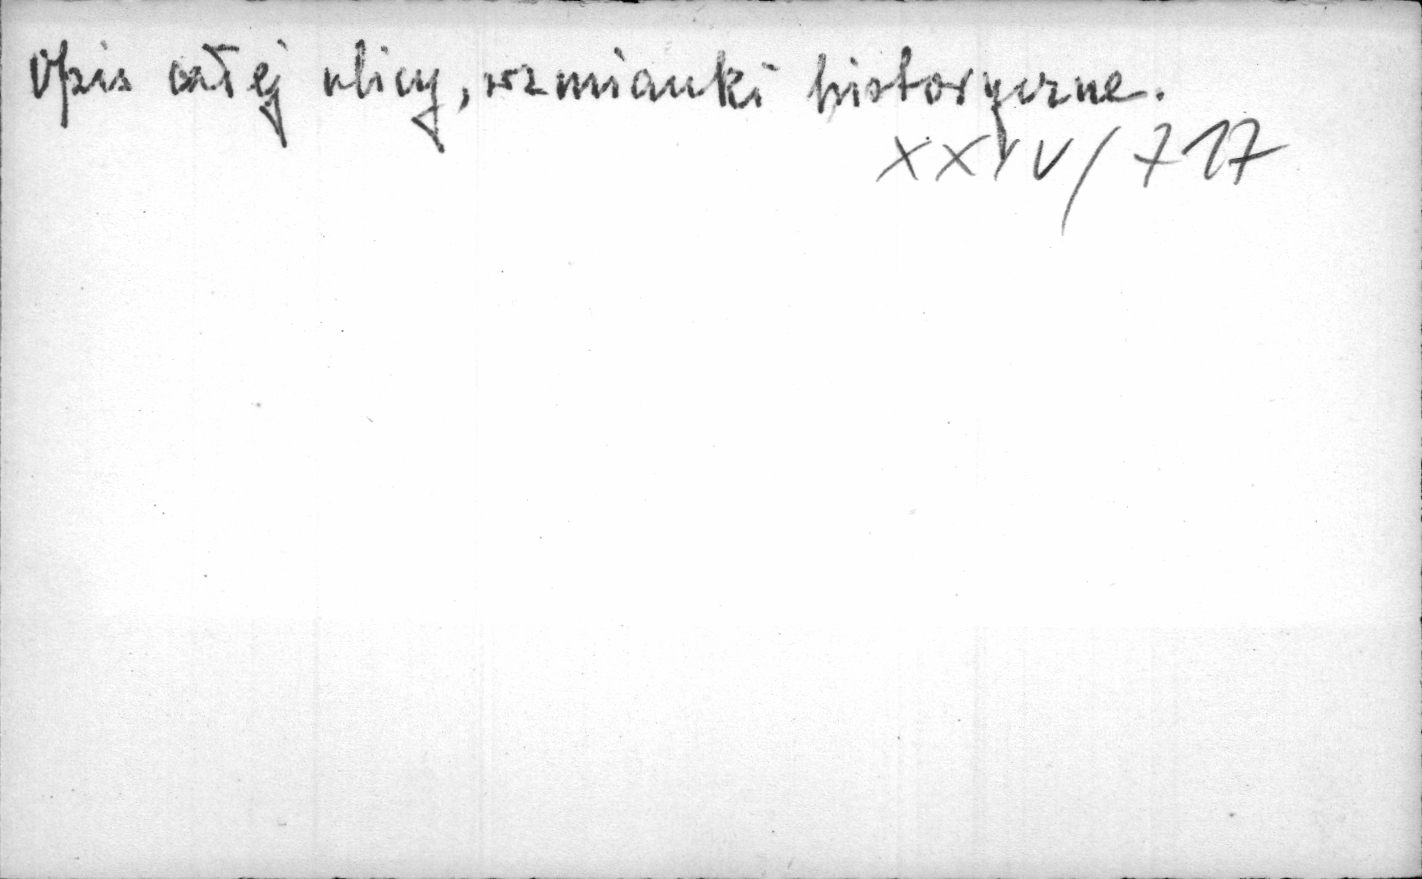 Opis całej ulicy, wzmianki historyczne.
XXIV/717